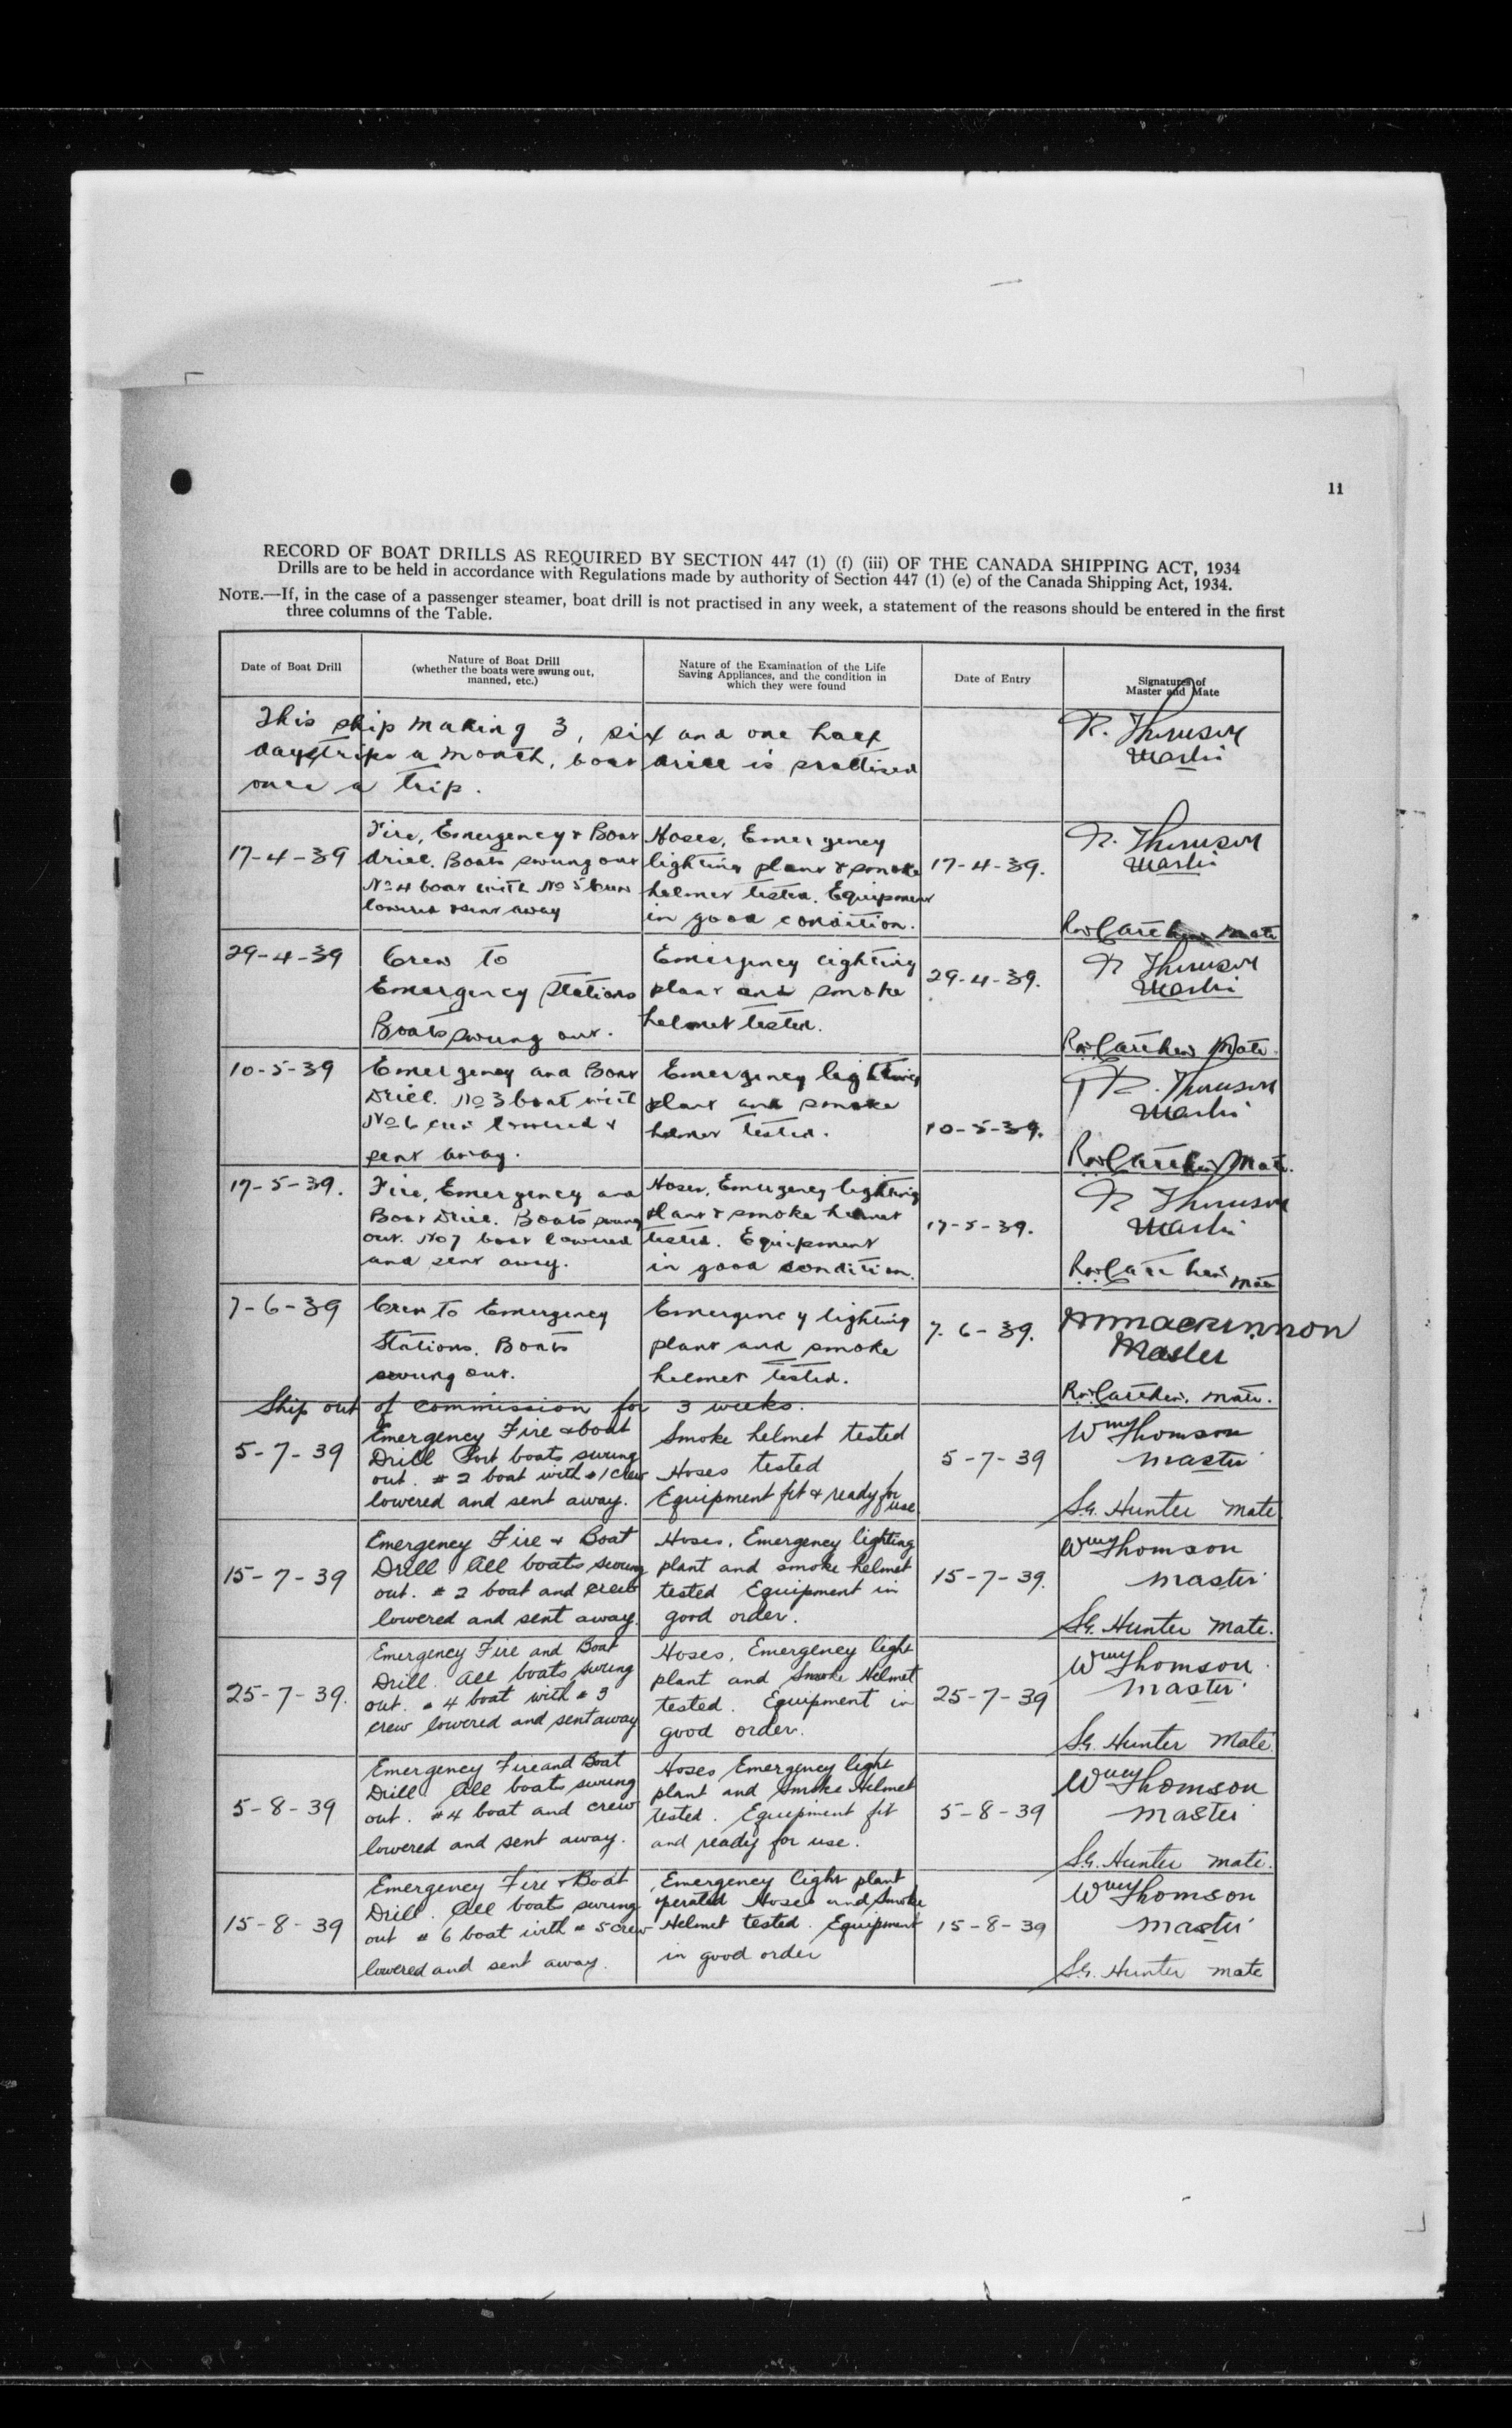 11
RECORD OF BOAT DRILLS AS REQUIRED BY SECTION 447 (1) (f) (iii) OF THE CANADA SHIPPING ACT, 1934
Drills are to be held in accordance with Regulations made by authority of Section 447 (1) (e) of the Canada Shipping Act, 1934.
NOTE.—If, in the case of a passenger steamer, boat drill is not practised in any week, a statement of the reasons should be entered in the first
three columns of the Table.
Date of Boat Drill
Nature of Boat Drill
(whether the boats were swung out,
manned, etc.)
Nature of the Examination of the Life
Saving Appliances, and the condition in
which they were found
Date of Entry
Signatures of
Master and Mate
This ship making 3, six and one half
days trips a month, boat drill is practised
once a trip.
R.
Master
17-4-39
Fire, Emergency & Boat
drill. Boats swung out
No 4 boat with No 5 Crew
lowered & sent away
Hoses, Emergency
lighting plant & smoke
helmet tested. Equipment
in good condition.
17-4-39.
Master
Mate
29-4-39
Crew to
Emergency Stations
Boats swung out.
Emergency lighting
plant and smoke
helmet tested.
29-4-39.
Master
Mate
10-5-39
Emergency and Boat
Drill. No 3 boat with
No 6 crew lowered &
sent away.
Emergency lighting
plant and smoke
helmet tested.
10-5-39.
Master
Mate.
17-5-39.
Fire, Emergency and
Boat Drill. Boats swung
out. No 7 boat lowered
and sent away.
Hoses, Emergency lighting
plant & smoke helmet
tested. Equipment
in good condition.
17-5-39.
Master
Mate
7-6-39
Crew to Emergency
Stations. Boats
swung out.
Emergency lighting
plant and smoke
helmet tested.
7-6-39.
MacKinnon
Master
Mate.
Ship out of commission for 3 weeks.
5-7-39
Emergency Fire & boat
Drill Port boats swung
out. # 2 boat with #1 crew
lowered and sent away.
Smoke helmet tested
Hoses tested
Equipment fit & ready for
use
5-7-39
Wm Thomson
Master
S.G. Hunter Mate
15-7-39
Emergency Fire & Boat
Drill All boats swung
out. # 2 boat and crew
lowered and sent away.
Hoses, Emergency lighting
plant and smoke helmet
tested Equipment in
good order.
15-7-39.
Wm Thomson
Master
S.G. Hunter Mate.
25-7-39.
Emergency Fire and Boat
Drill. All boats swung
out. # 4 boat with # 3
crew lowered and sent away
Hoses, Emergency light
plant and Smoke Helmet
tested. Equipment in
good order.
25-7-39
Wm Thomson
Master
S.G. Hunter Mate.
5-8-39
Emergency Fire and Boat
Drill All boats swung
out. #4 boat and crew
lowered and sent away.
Hoses Emergency light
plant and Smoke Helmet
tested. Equipment fit
and ready for use.
5-8-39
Wm Thomson
Master
S.G. Hunter mate.
15-8-39
Emergency Fire & Boat
Drill. All boats swung
out # 6 boat with # 5 crew
lowered and sent away.
Emergency light plant
operated Hoses and Smoke
Helmet tested. Equipment
in good order
15-8-39
Wm Thomson
Master
S.G. Hunter mate